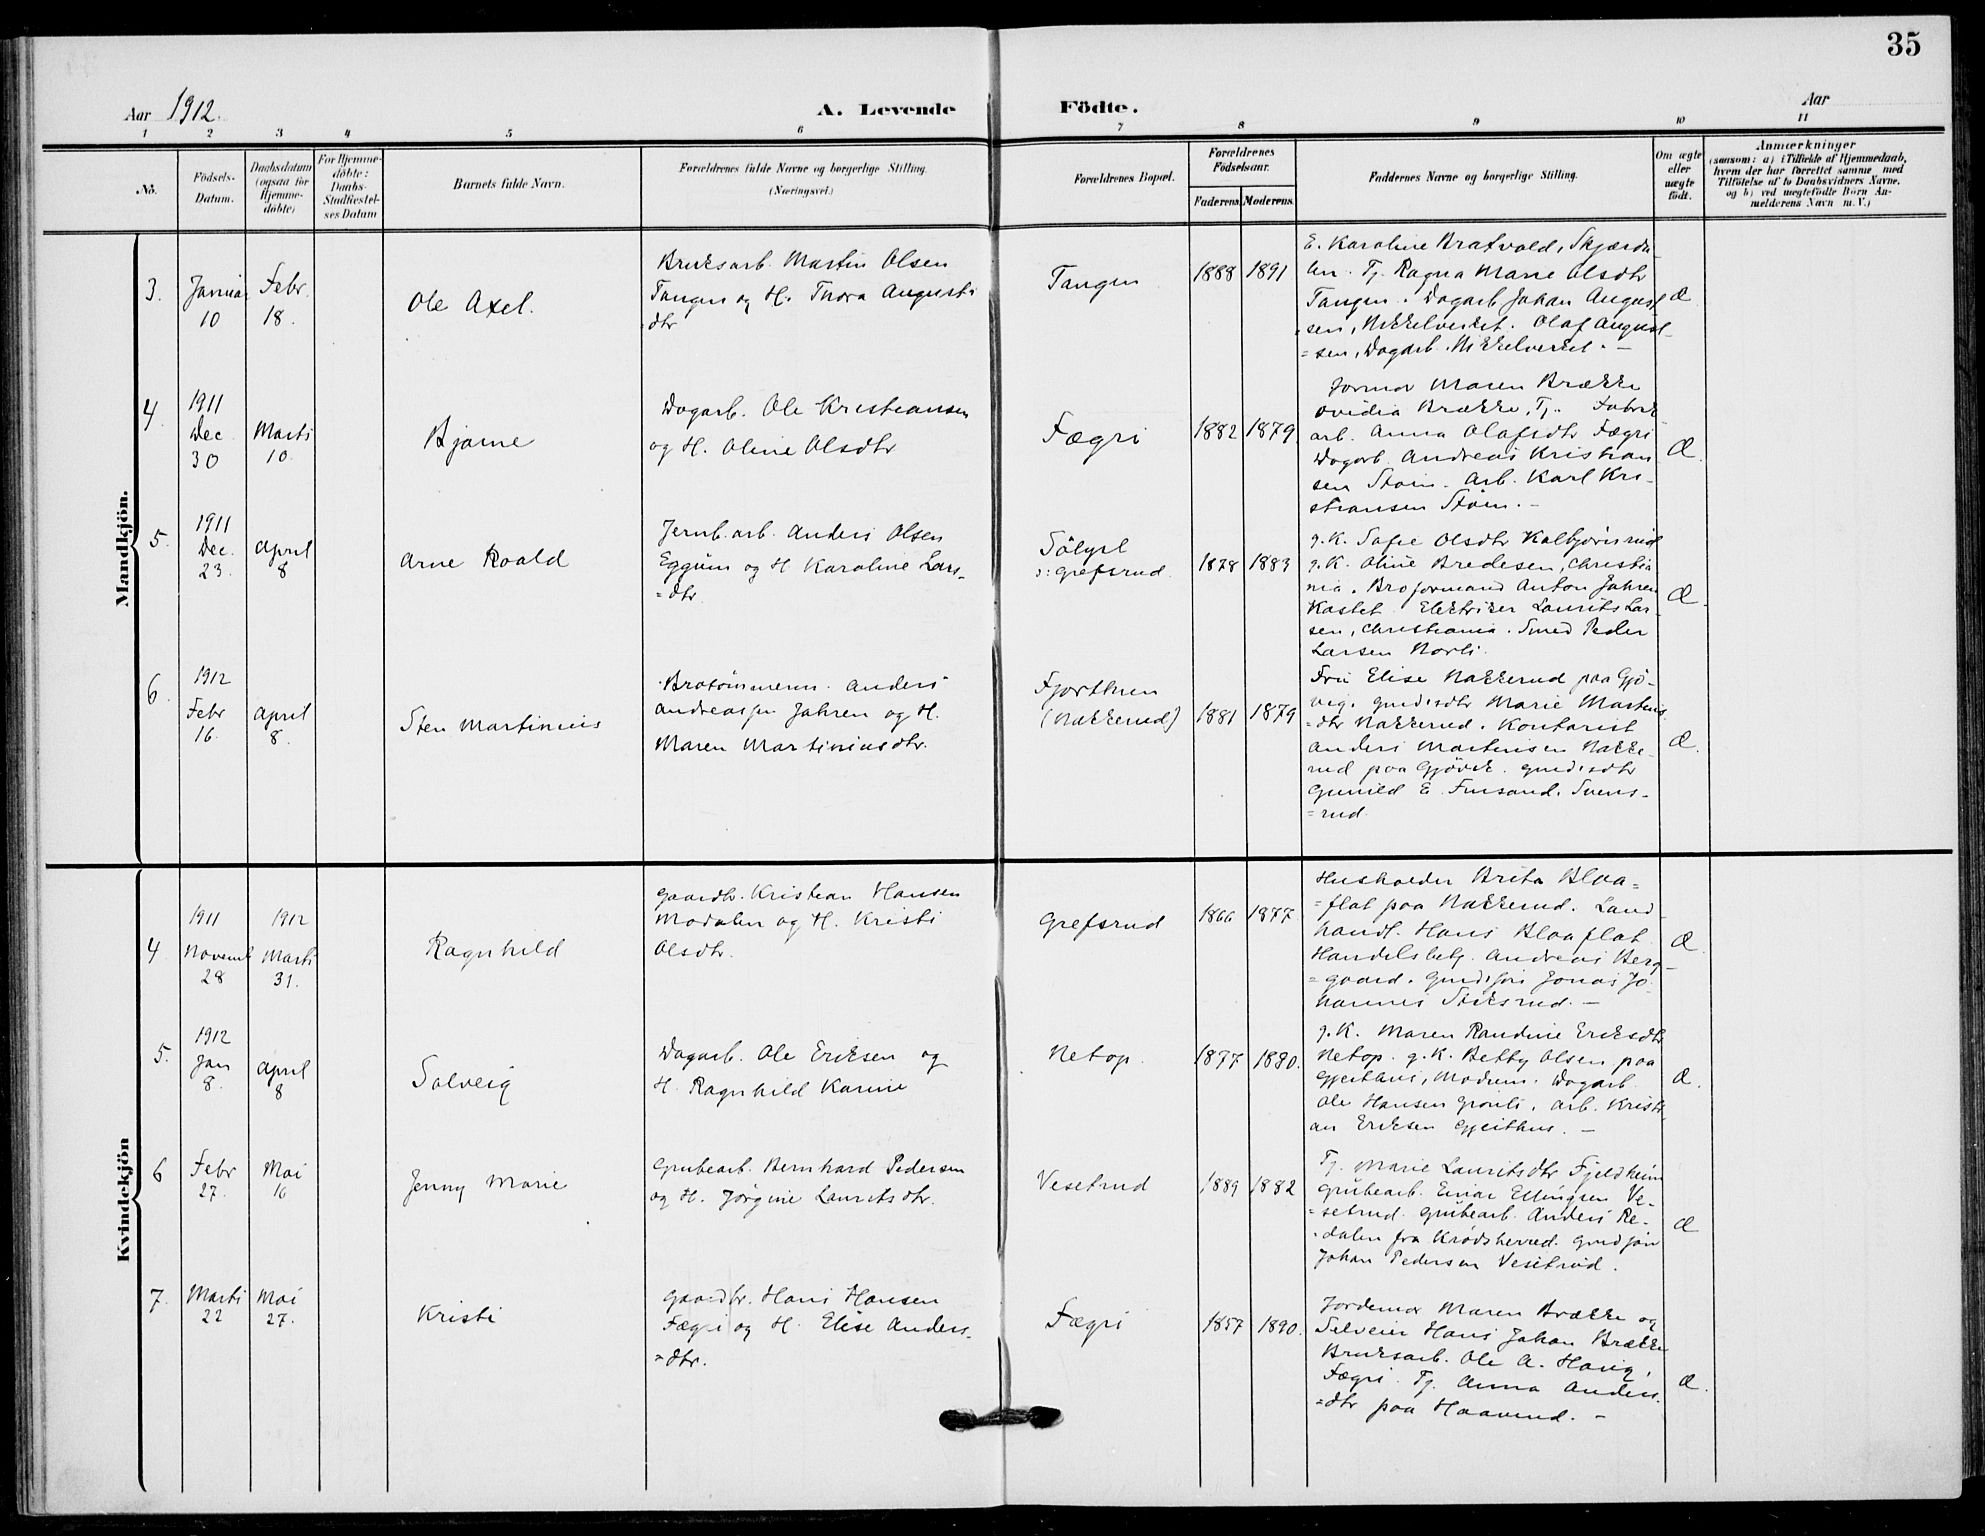 35
Aar 1912.
A. Levende Födte.
Aar
1 2 3 4 5 6 7 8 9 10 11
No.
Födsels-
Datum.
Daabsdatum
(ogsaa for
Hjemme-
döbte)
For Hjemme-
döbte:
Daabs-
Stadfæstel-
ses Datum
Barnets fulde Navn.
Forældrenes fulde Navne og borgerlige Stilling.
(Næringsvei.)
Forældrenes Bopæl.
Forældrenes
Födselsaar.
Faderens Moderens
Faddernes Navne og borgerlige Stilling.
Om ægte
eller
uægte
födt.
Anmærkninger
(saasom: a) i Tilfælde af Hjemmedaab,
hvem der har forrettet samme, med
Tilföielse af to Daabsvidners Navne,
og b) ved uægtefödte Börn An-
melderens Navn m. V.)
Mandkjön.
3.
Januar
10
Febr.
18.
Ole Axel.
Bruksarb. Martin Olsen
Tangen og H. Thora Augusts
=dtr
Tangen
1888 1891
E. Karoline Bratvold, Skjærda
len. Tj. Ragna Marie Olsdtr
Tangen. Dagarb Johan August
=sen, Nikkelverket. Olaf August
=sen, Dagarb. Nikkelverket. —
Æ
4.
1911
Dec.
30
Marts
10.
Bjarne
Dagarb. Ole Kristiansen
og H. Oline Olsdtr
Fægri
1882 1879
Jormor Maren Brække
Ovidia Brække, Tj. Fabrik
arb. Anna Olafsdtr Fægri
Dagarb. Andreas Kristian
sen Stöin. Arb. Karl Kri-
stiansen Stöin. —
Æ.
5.
1911
Dec.
23.
April
8
Arne Roald
Jernb.arb. Anders Olsen
Eggum og H Karoline Lars
=dtr.
Sölyst
ɔ: Grefsrud.
1878 1883
g. K. Sofie Olsdtr Kalbjörnsrud
g. K. Oline Bredesen, Christia
nia. Broformand Anton Jahren
Kastet. Elektriker Laurits Lar-
sen, Christiania. Smed Peder
Larsen Norli.
Æ.
6.
1912
Febr
16.
April
8.
Sten Martinius
Brotömmerm. Anders
Andreassen Jahren og H.
Maren Martiniusdtr.
Fjorthun
(Nakkerud)
1881 1879
Fru Elise Nakkerud paa Gjö-
vig. Gmdsdtr Marie Martins
=dtr Nakkerud. Kontorist
Anders Martinsen Nakke-
rud paa Gjövik. Gmdsdtr
Gunild E. Finsand. Svens-
=rud.
Æ.
Kvindekjön
4.
1911
Novemb
28
1912
Marts
31.
Ragnhild
Gaardbr. Kristian Hansen
Modalen og H. Kristi
Olsdtr.
Grefsrud
1866 1877
Husholder Brita Blaa=
=flat paa Nakkerud. Land
handl. Hans Blaaflat
Handelsbetj. Andreas Berg-
=gaard. Gmdsøn Jonas Jo
hannes Stiksrud. —
Æ.
5.
1912
Jan
8.
April
8
Solveig
Dagarb. Ole Eriksen og
H. Ragnhild Karine
Netop.
1877 1880.
g. K. Maren Randine Eriksdtr
Netop. g. K. Betty Olsen paa
Gjeithus, Modum. Dagarb.
Ole Hansen Gronli. Arb. Kristi
an Eriksen Gjeithus. —
Æ.
6
Febr
27.
Mai
16
Jenny Marie
Grubearb. Bernhard Pedersen
og H. Jörgine Lauritsdtr.
Vesetrud
1889 1882
Tj. Marie Lauritsdtr Fjeldheim
Grubearb. Einar Ellingsen Ve-
=setrud. Grubearb. Anders Re-
=dalen fra Krødsherred. Gmdsøn
Johan Pedersen Vesetrud.
Æ
7.
Marts
22
Mai
27.
Kristi
Gaardbr. Hans Hansen
Fægri og H. Elise Anders-
=dtr.
Fægri
1857 1890.
Jordemor Maren Brække og
Selveier Hans Johan Brække
Bruksarb. Ole A. Haug,
Fægri. Tj. Anna Anders.
=dtr paa Haavund. —
Æ.